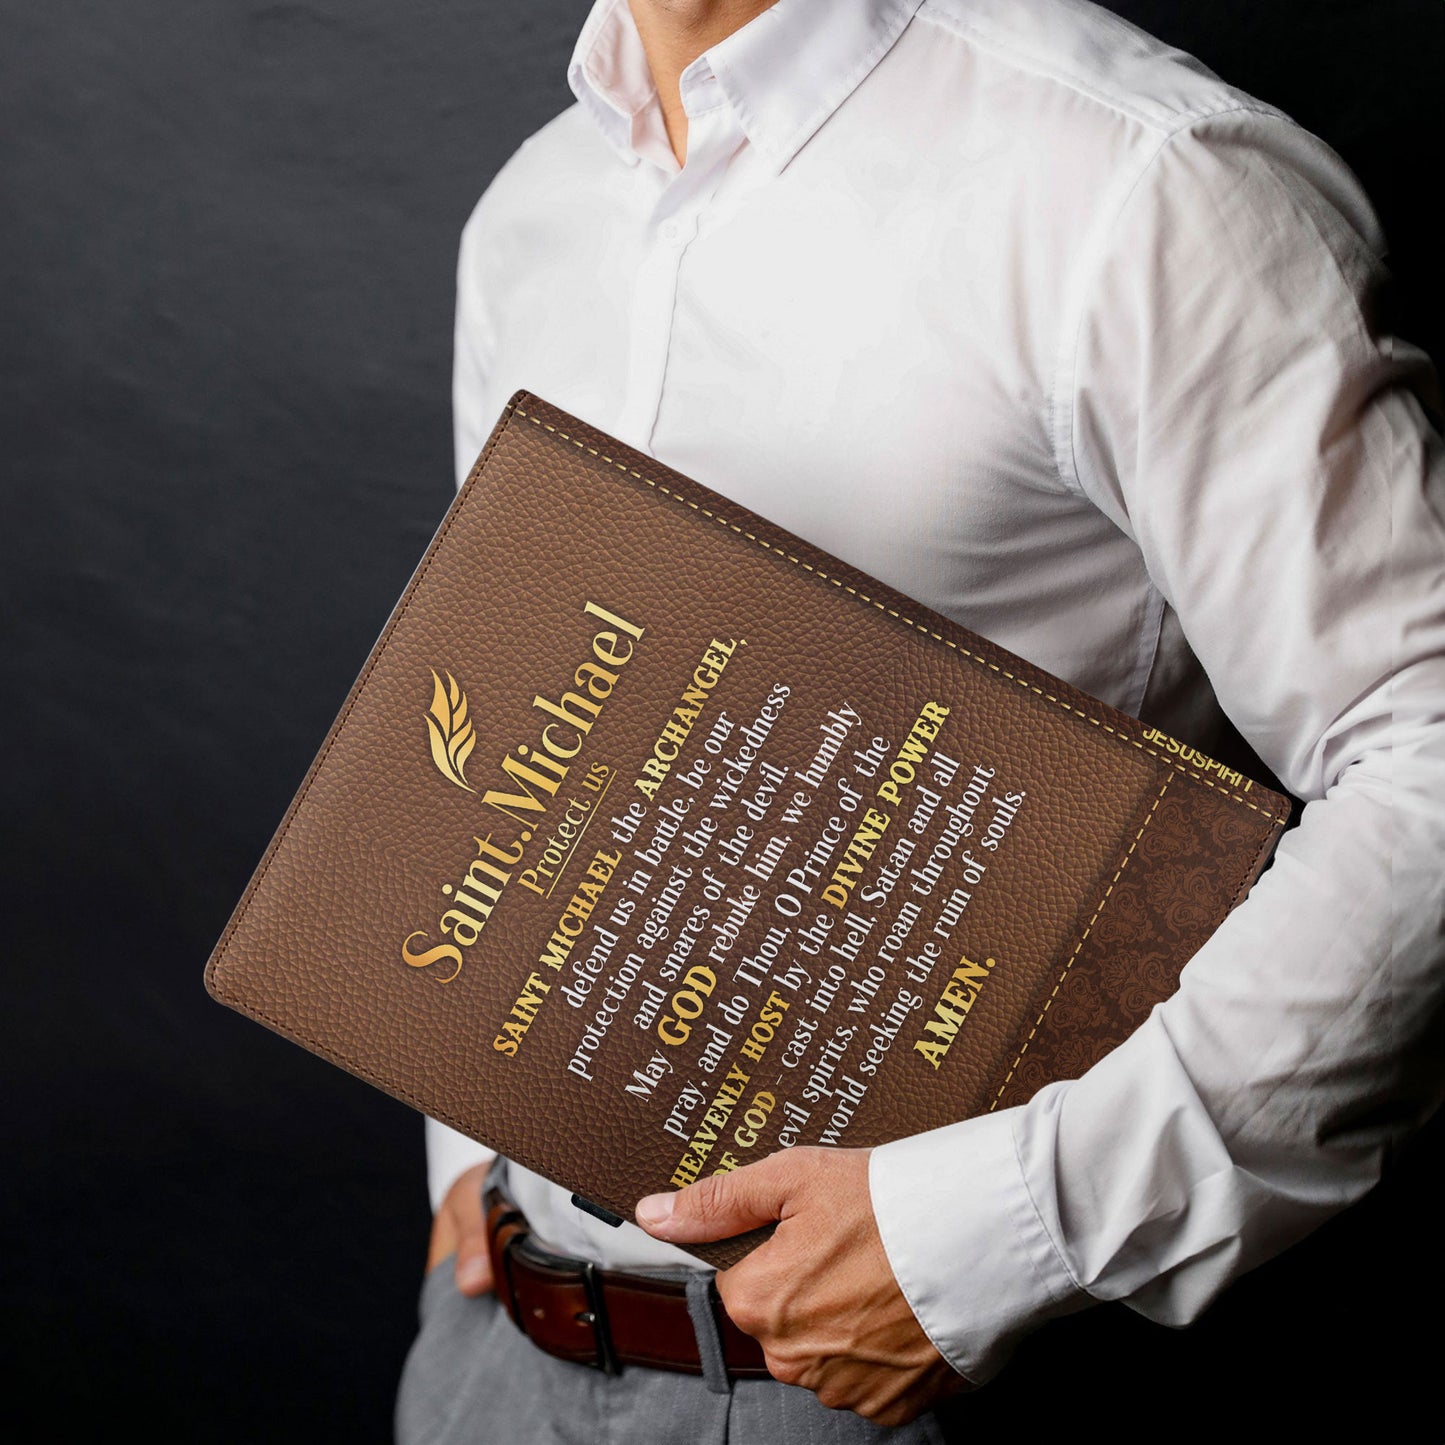 Saint.Michael
Protect us
SAINT MICHAEL the ARCHANGEL,
defend us in battle, be our
protection against the wickedness
and snares of the devil.
May GOD rebuke him, we humbly
pray, and do Thou, O Prince of the
HEAVENLY HOST by the DIVINE POWER
OF GOD - cast into hell, Satan and all
evil spirits, who roam throughout
world seeking the ruin of souls.
AMEN.
JESUSPIRIT